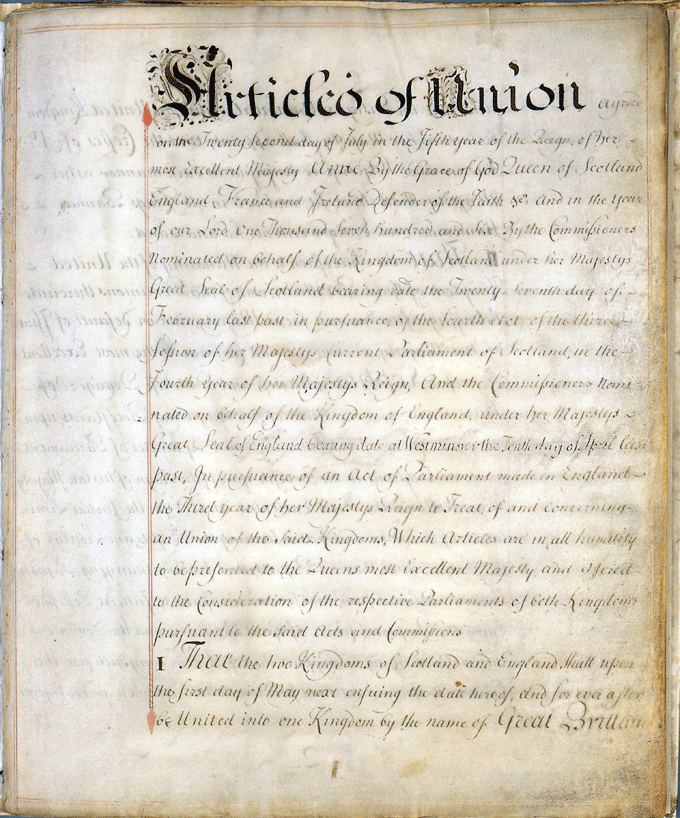 Articles of Union agreed
on the Twenty Second day of July in the Fifth Year of the Reign of her
most Excellent Majesty Anne By the Grace of God Queen of Scotland
England France and Ireland Defender of the Faith &c. And in the Year
of our Lord One Thousand Seven hundred and Six By the Commissioners
Nominated on behalf of the Kingdom of Scotland under her Majestys
Great Seal of Scotland bearing date the Twenty Seventh day of
February last past in pursuance of the fourth Act of the third
Session of her Majestys Current Parliament of Scotland, in the
Fourth Year of her Majestys Reign, And the Commissioners Nomi
nated on behalf of the Kingdom of England, under her Majestys
Great Seal of England bearing date at Westminster the Tenth day of April last
past, In pursuance of an Act of Parliament made in England
the Third year of her Majestys Reign to Treat, of and Concerning
an Union of the said Kingdoms, Which Articles are in all humility
to be presented to the Queens most Excellent Majesty, and offered
to the Consideration of the respective Parliaments of both Kingdoms
pursuant to the said Acts and Commissions
I That the two Kingdoms of Scotland and England shall upon
the first day of May next ensuing the date hereof, and for ever after
be United into one Kingdom by the name of Great Brittain
1